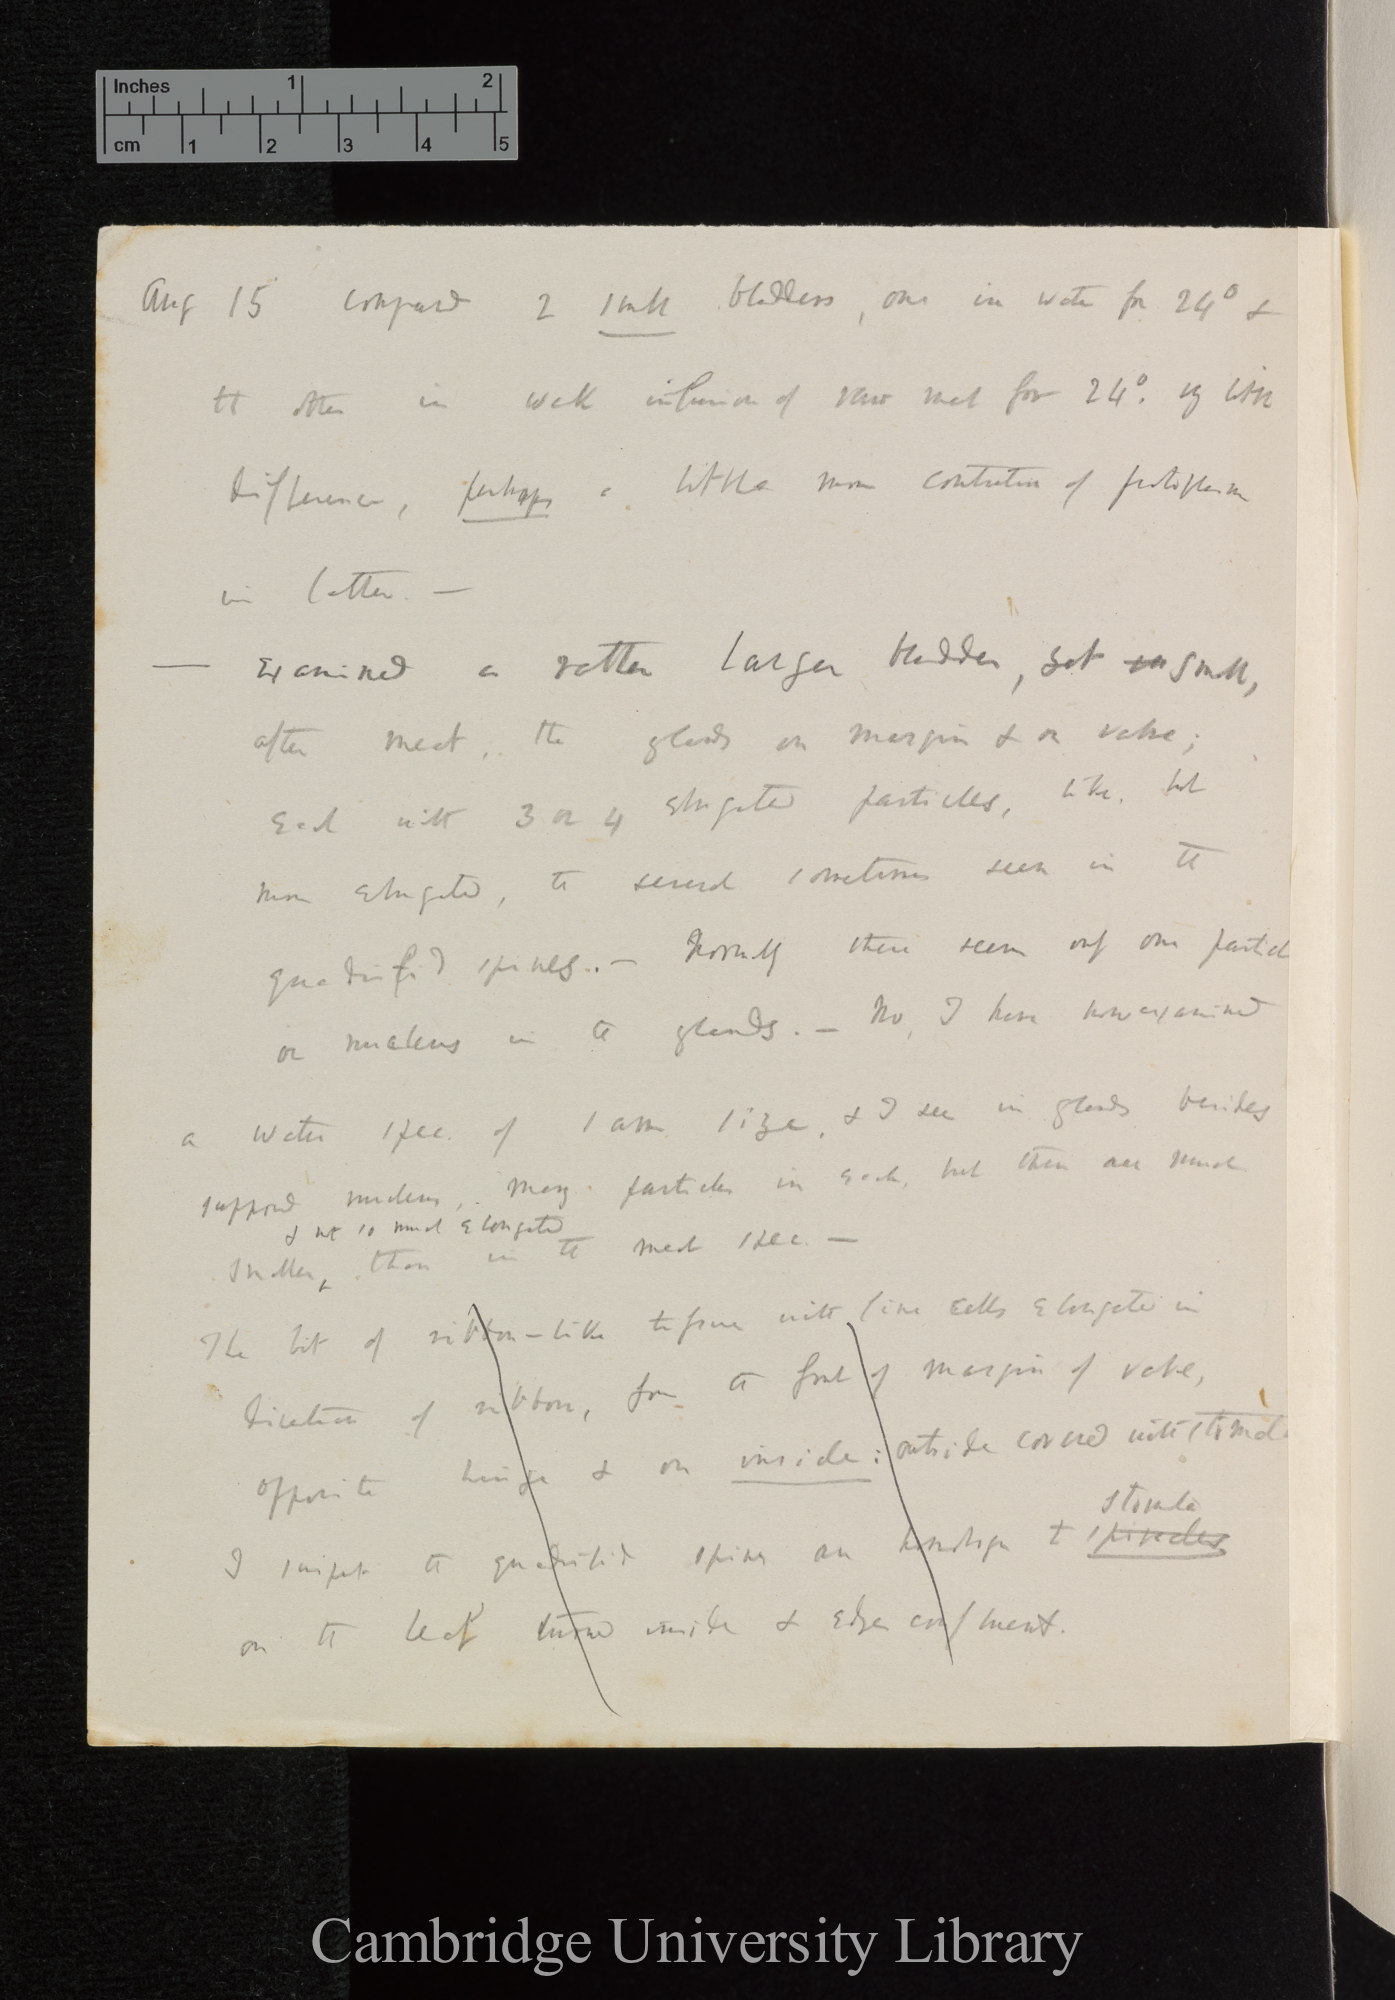 Inches 1 2
cm 1 2 3 4 5
Aug 15 compared 2 small bladders, one in water for 24° &
the other in weak infusion of raw meat for 24°. vy little
difference, perhaps a little more contraction of protoplasm
in latter. —
— Examined a rather larger bladder, yet small,
after meat, the glands on margin & on valve;
each with 3 or 4 elongated particles, like, but
more elongated, the several sometimes seen in the
quadrifid spines. — Normally there seem only one particle
or nucleus in the glands. — No, I have now examined
a water spec. of same size, & I see in glands besides
supposed nucleus, many particles in each, but then are much
& not so much elongated
smaller, than in the meat spec. —
The bit of ribbon-like tissue with line cells elongated in
direction of ribbon, from the front of margin of valve,
opposite hinge & on inside: outside covered with stomata
stomata
I suspect the quadrifid spines are homologn to spinedes
on the leaf turned inside & edges confluent.
Cambridge University Library